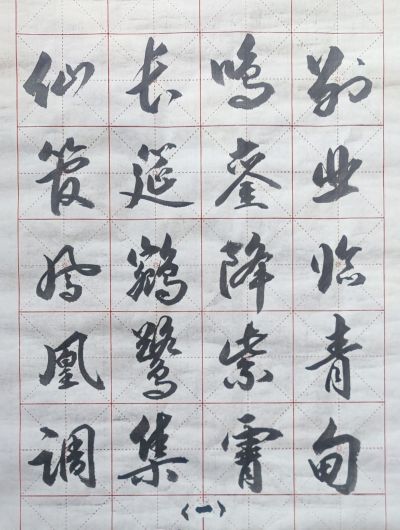 别业临青甸
鸣銮降紫霄
长筵鹓鹭集
仙管凤凰调
〈一〉